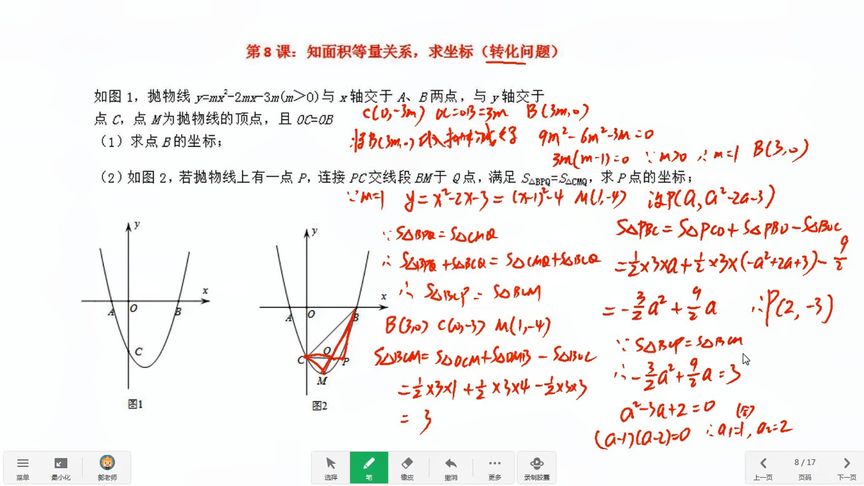 第8课：知面积等量关系，求坐标（转化问题）
如图1，抛物线 y=mx²-2mx-3m(m＞0)与 x 轴交于 A、B 两点，与 y 轴交于
点 C，点 M 为抛物线的顶点，且 OC=OB
C(0,-3m) OC=OB=3m B(3m,0)
（1）求点 B 的坐标；
将B(3m,0)代入抛物线得 9m²-6m²-3m=0
3m(m-1)=0 ∵m>0 ∴m=1 B(3,0)
（2）如图2，若抛物线上有一点 P，连接 PC 交线段 BM 于 Q 点，满足 S△BPQ=S△CMQ，求 P 点的坐标；
∵m=1 y=x²-2x-3=(x-1)²-4 M(1,-4) 设P(a,a²-2a-3)
∵S△BPQ=S△CMQ
∴S△BPQ+S△BCQ=S△CMQ+S△BCQ
∴S△BCP=S△BCM
B(3,0) C(0,-3) M(1,-4)
S△BCM=S△OCM+S△OMB-S△BOC
=½×3×1+½×3×4-½×3×3
=3
S△PBC=S△PCO+S△PBO-S△BOC
=½×3×a+½×3×(-a²+2a+3)-9/2
=-3/2a²+9/2a ∴P(2,-3)
∵S△BCP=S△BCM
∴-3/2a²+9/2a=3
a²-3a+2=0
(a-1)(a-2)=0 ∴a₁=1(舍),a₂=2
y
x
A
O
B
C
图1
y
x
A
O
B
C
Q
P
M
图2
菜单
最小化
郭老师
选择
笔
橡皮
撤消
更多
录制胶囊
上一页
8 / 17
页码
下一页